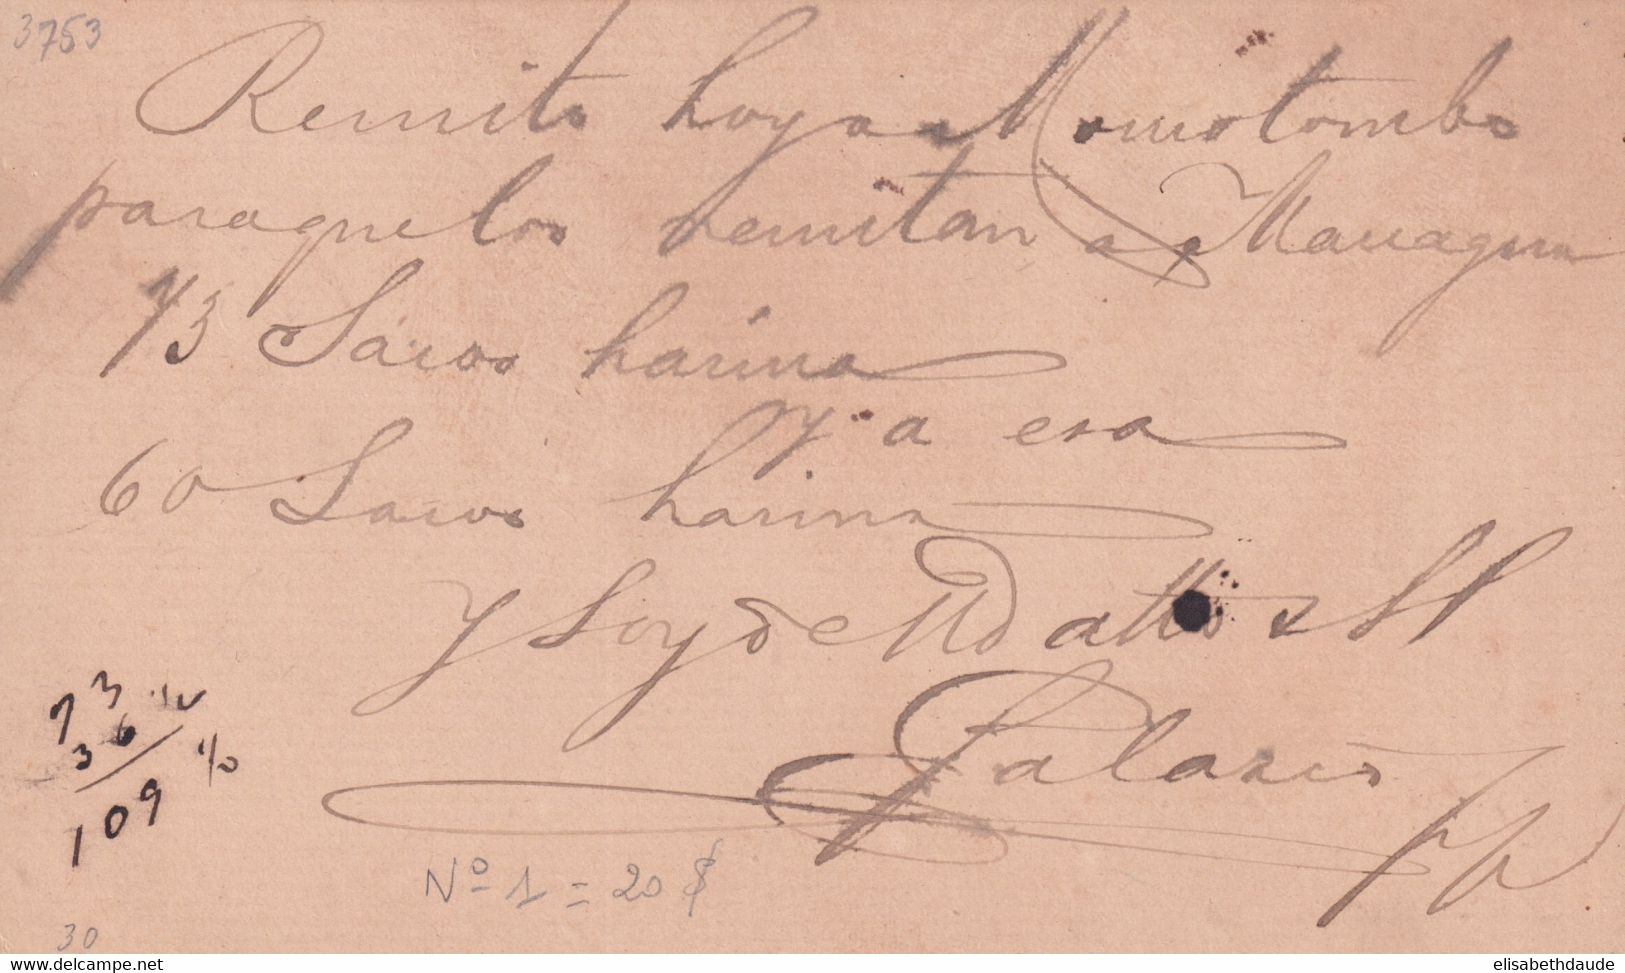 3753
Remito hoy a Momotombo
para que los remitan a Managua
73 Sacos harina
y a esa
60 Sacos harina
y soy de Ud atto s S
Palazio
73
36
109
No 1 = 20 $
30
www.delcampe.net
elisabethdaude